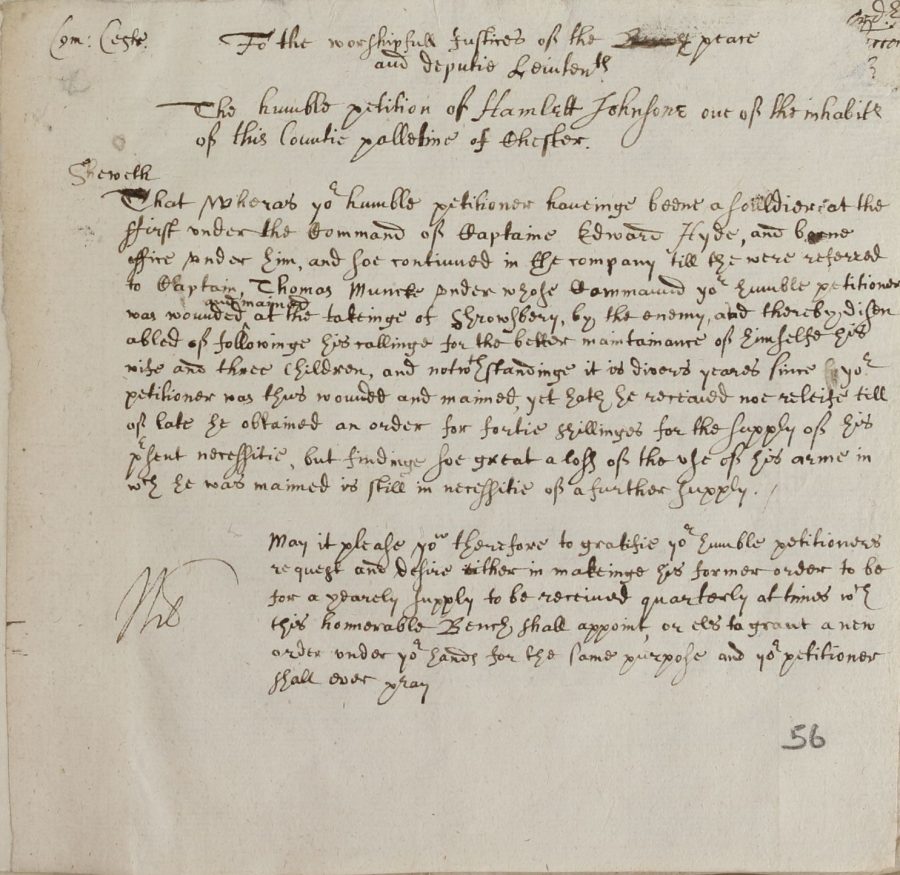 Com: Cestr:
To the worshipfull Justices of the peace
and deputie Leiutenth
The humble petition of Hamlett Johnsone one of the inhabits
of this Countie palletine of Chester.
Sheweth
That Wheras yor humble petitioner haveinge beene a souldier at the
ffirst under the Command of Captaine Edward Hyde, and bore
office under him, and soe continued in the company till the were referred
to Captain, Thomas Muncke under whose Command yor humble petitioner
and maimed
was wounded at the takeinge of Shrowsbery, by the enemy, and thereby disen
abled of followinge his callinge for the better maintainance of himselfe his
wife and three Children, and notwthstandinge it is divers yeares since yor
petitioner was thus wounded and maimed, yet hath he receaived noe releife till
of late he obtained an order for fortie shillinges for the supply of his
prsent necessitie, but findinge soe great a loss of the use of his arme in
wch he was maimed is still in necessitie of a further supply.
May it please you therefore to gratifie yor humble petitioners
request and desire either in makeinge his former order to be
for a yearely supply to be received quarterly at times wch
this honnerable Bench shall appoint, or els to graunt a new
order under yor hands for the same purpose and yor petitioner
shall ever pray
56